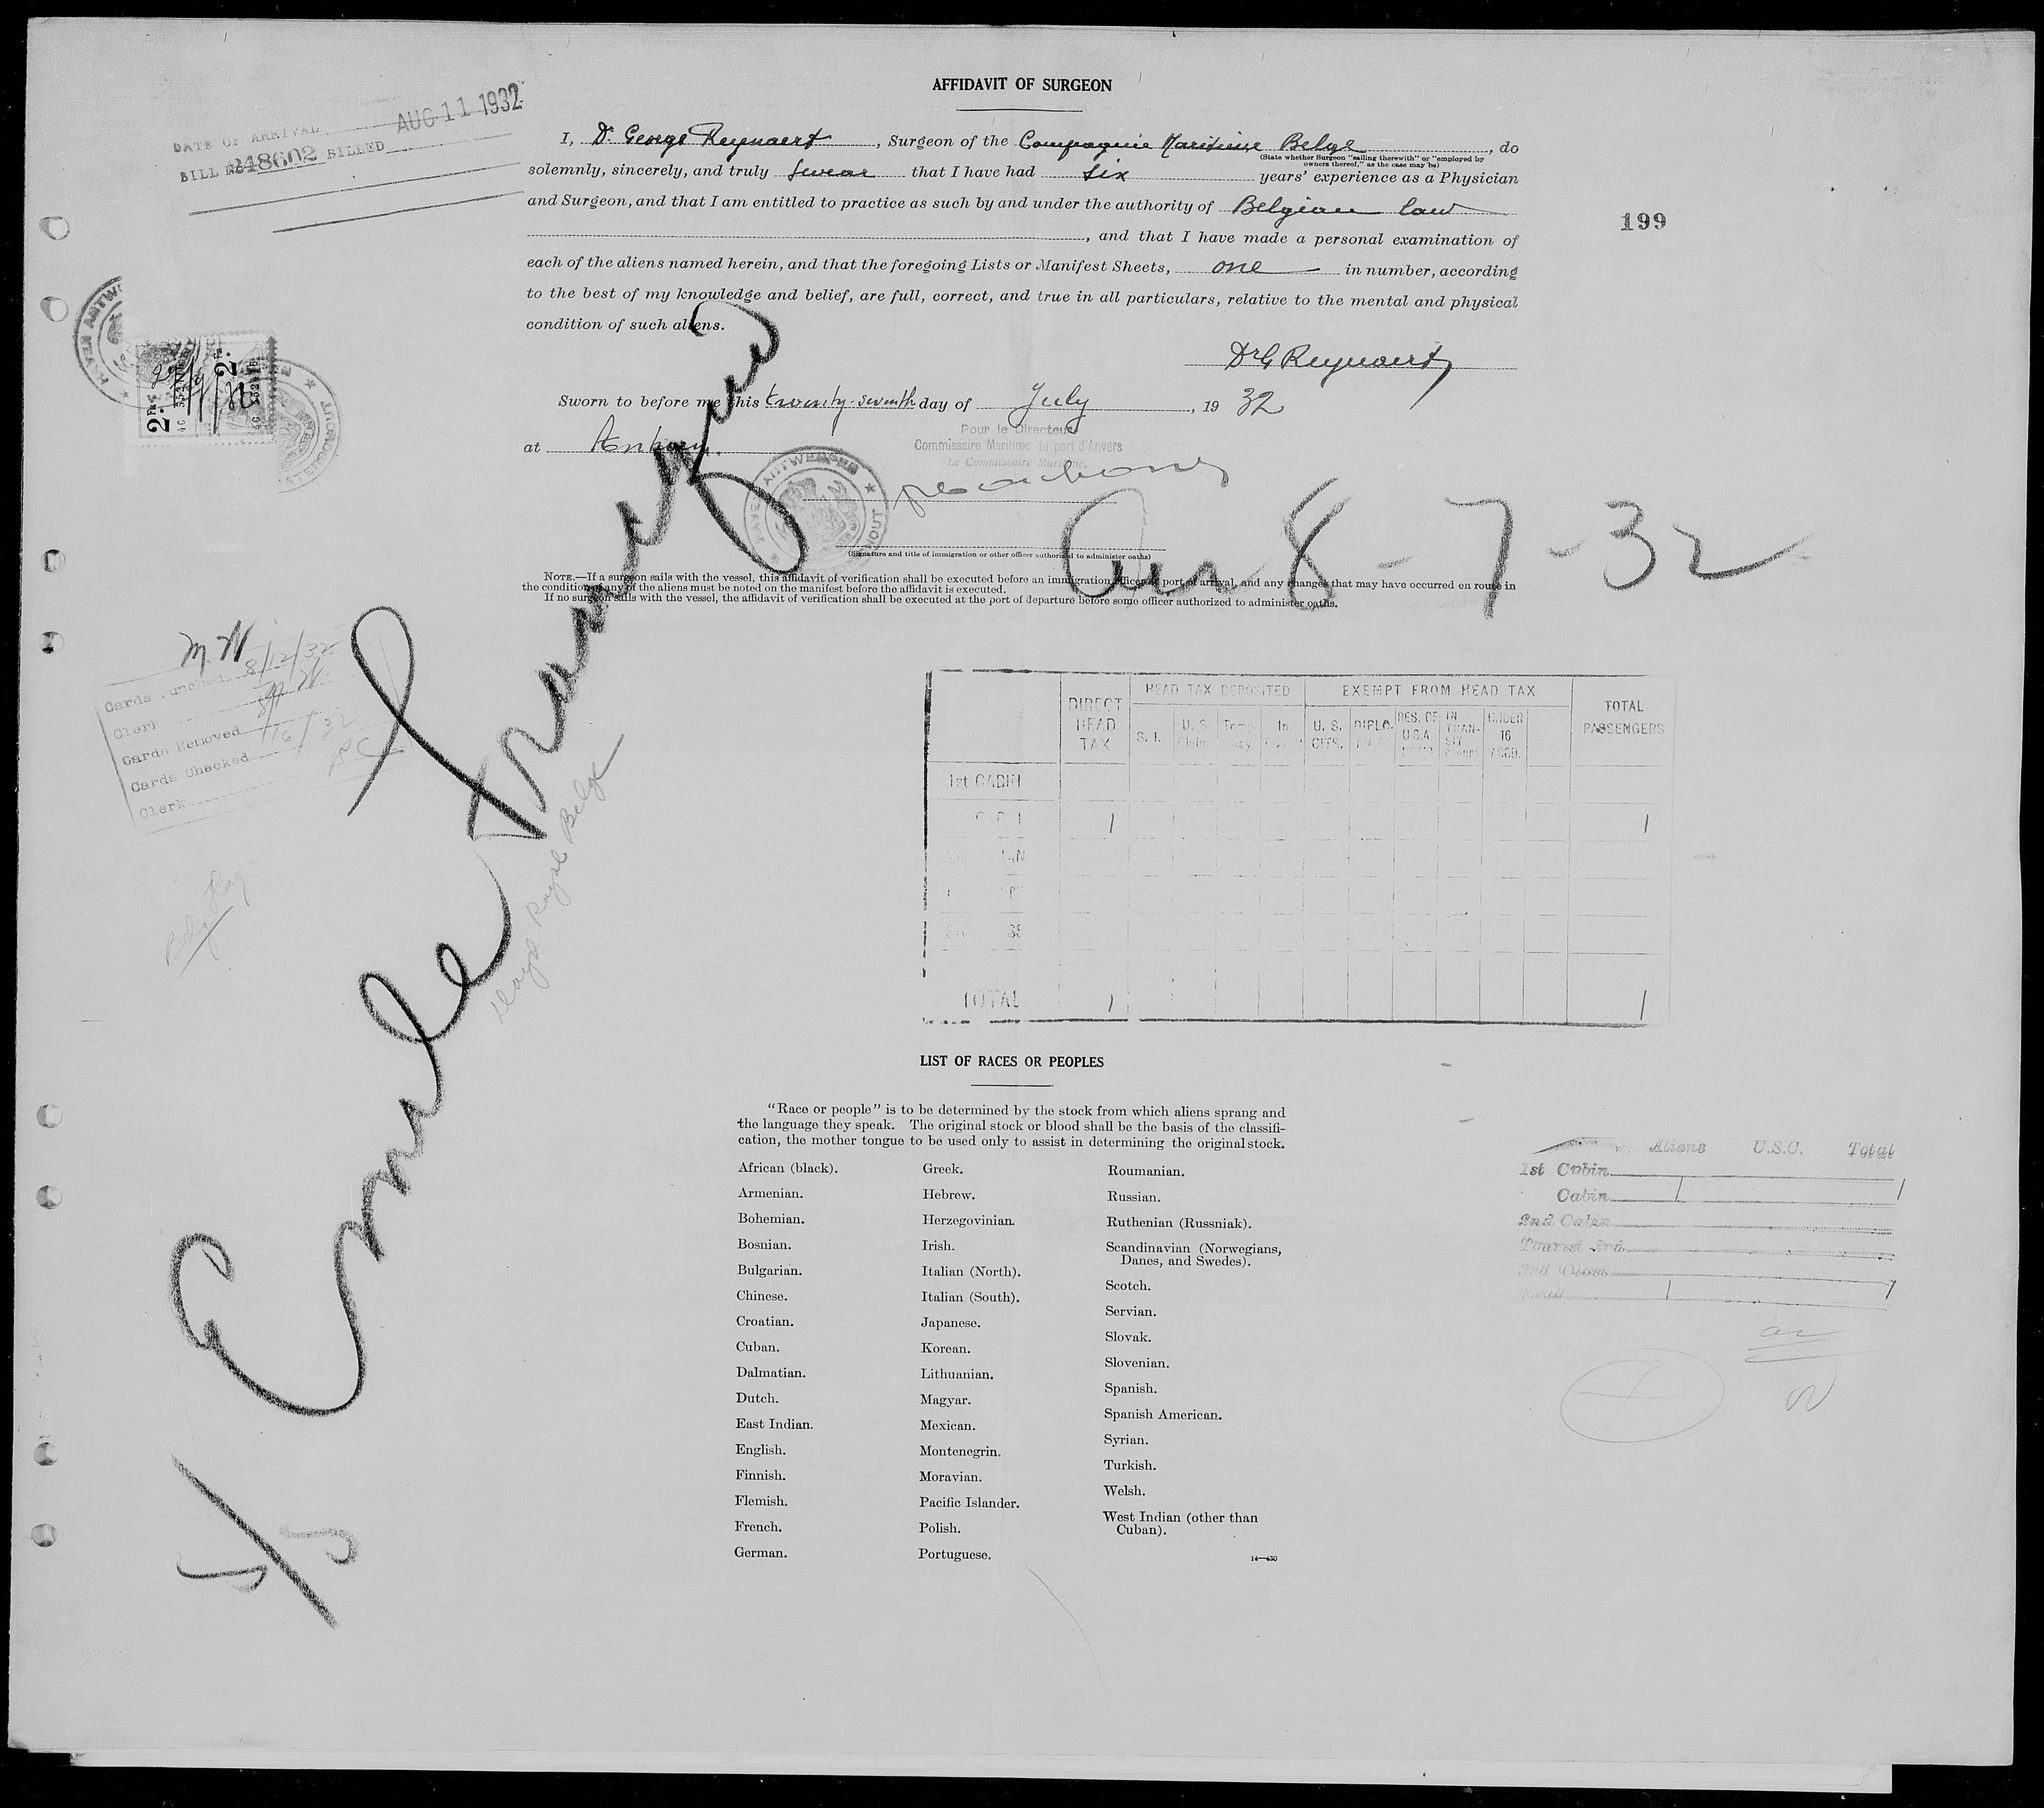 AFFIDAVIT OF SURGEON
DATE OF ARRIVAL AUG 11 1932
BILL No 248602 BILLED
I, Dr George Reynaert, Surgeon of the Compagnie Maritime Belge, do
(State whether Surgeon "sailing therewith" or "employed by
owners thereof," as the case may be)
solemnly, sincerely, and truly swear that I have had six years' experience as a Physician
and Surgeon, and that I am entitled to practice as such by and under the authority of Belgian law
, and that I have made a personal examination of
199
each of the aliens named herein, and that the foregoing Lists or Manifest Sheets, one in number, according
to the best of my knowledge and belief, are full, correct, and true in all particulars, relative to the mental and physical
condition of such aliens.
Dr G Reynaert
Sworn to before me this twenty-seventh day of July, 19 32
at Antwerp.
Pour le Directeur
Commissaire Maritime du port d'Anvers
Le Commissaire Maritime,
HAVEN ANTWERPEN
2 Frs
2 Fr
(Signature and title of immigration or other officer authorized to administer oaths)
Arr 8-7-32
NOTE.—If a surgeon sails with the vessel, this affidavit of verification shall be executed before an immigration officer at port of arrival, and any changes that may have occurred en route in
the condition of any of the aliens must be noted on the manifest before the affidavit is executed.
If no surgeon sails with the vessel, the affidavit of verification shall be executed at the port of departure before some officer authorized to administer oaths.
M.W
Cards Punched 8/12/32
Clerk M.W.
Cards Removed
Cards Checked /16/32
Clerk
SS Emile Francqui
Lloyd Royal Belge
Belg Flag
DIRECT HEAD TAX
HEAD TAX DEPOSITED
EXEMPT FROM HEAD TAX
TOTAL PASSENGERS
S. I.
U. S.
U. S. CITS.
DIPLO.
RES. OF U.S.A
IN TRANSIT
UNDER 16 ACCD.
1st CABIN
CABIN 1 1
TOTAL 1 1
LIST OF RACES OR PEOPLES
"Race or people" is to be determined by the stock from which aliens sprang and
the language they speak. The original stock or blood shall be the basis of the classifi-
cation, the mother tongue to be used only to assist in determining the original stock.
African (black).
Armenian.
Bohemian.
Bosnian.
Bulgarian.
Chinese.
Croatian.
Cuban.
Dalmatian.
Dutch.
East Indian.
English.
Finnish.
Flemish.
French.
German.
Greek.
Hebrew.
Herzegovinian.
Irish.
Italian (North).
Italian (South).
Japanese.
Korean.
Lithuanian.
Magyar.
Mexican.
Montenegrin.
Moravian.
Pacific Islander.
Polish.
Portuguese.
Roumanian.
Russian.
Ruthenian (Russniak).
Scandinavian (Norwegians,
Danes, and Swedes).
Scotch.
Servian.
Slovak.
Slovenian.
Spanish.
Spanish American.
Syrian.
Turkish.
Welsh.
West Indian (other than
Cuban).
14—430
Aliens U.S.C. Total
1st Cabin
Cabin 1 1
2nd Cabin
Tourist 3rd
3rd Class
1 1